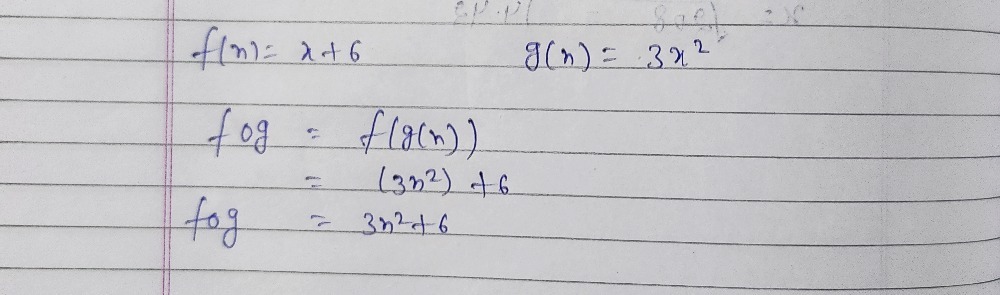 f(x) = x+6 g(x) = 3x²
fog = f(g(x))
= (3x²) +6
fog = 3x²+6